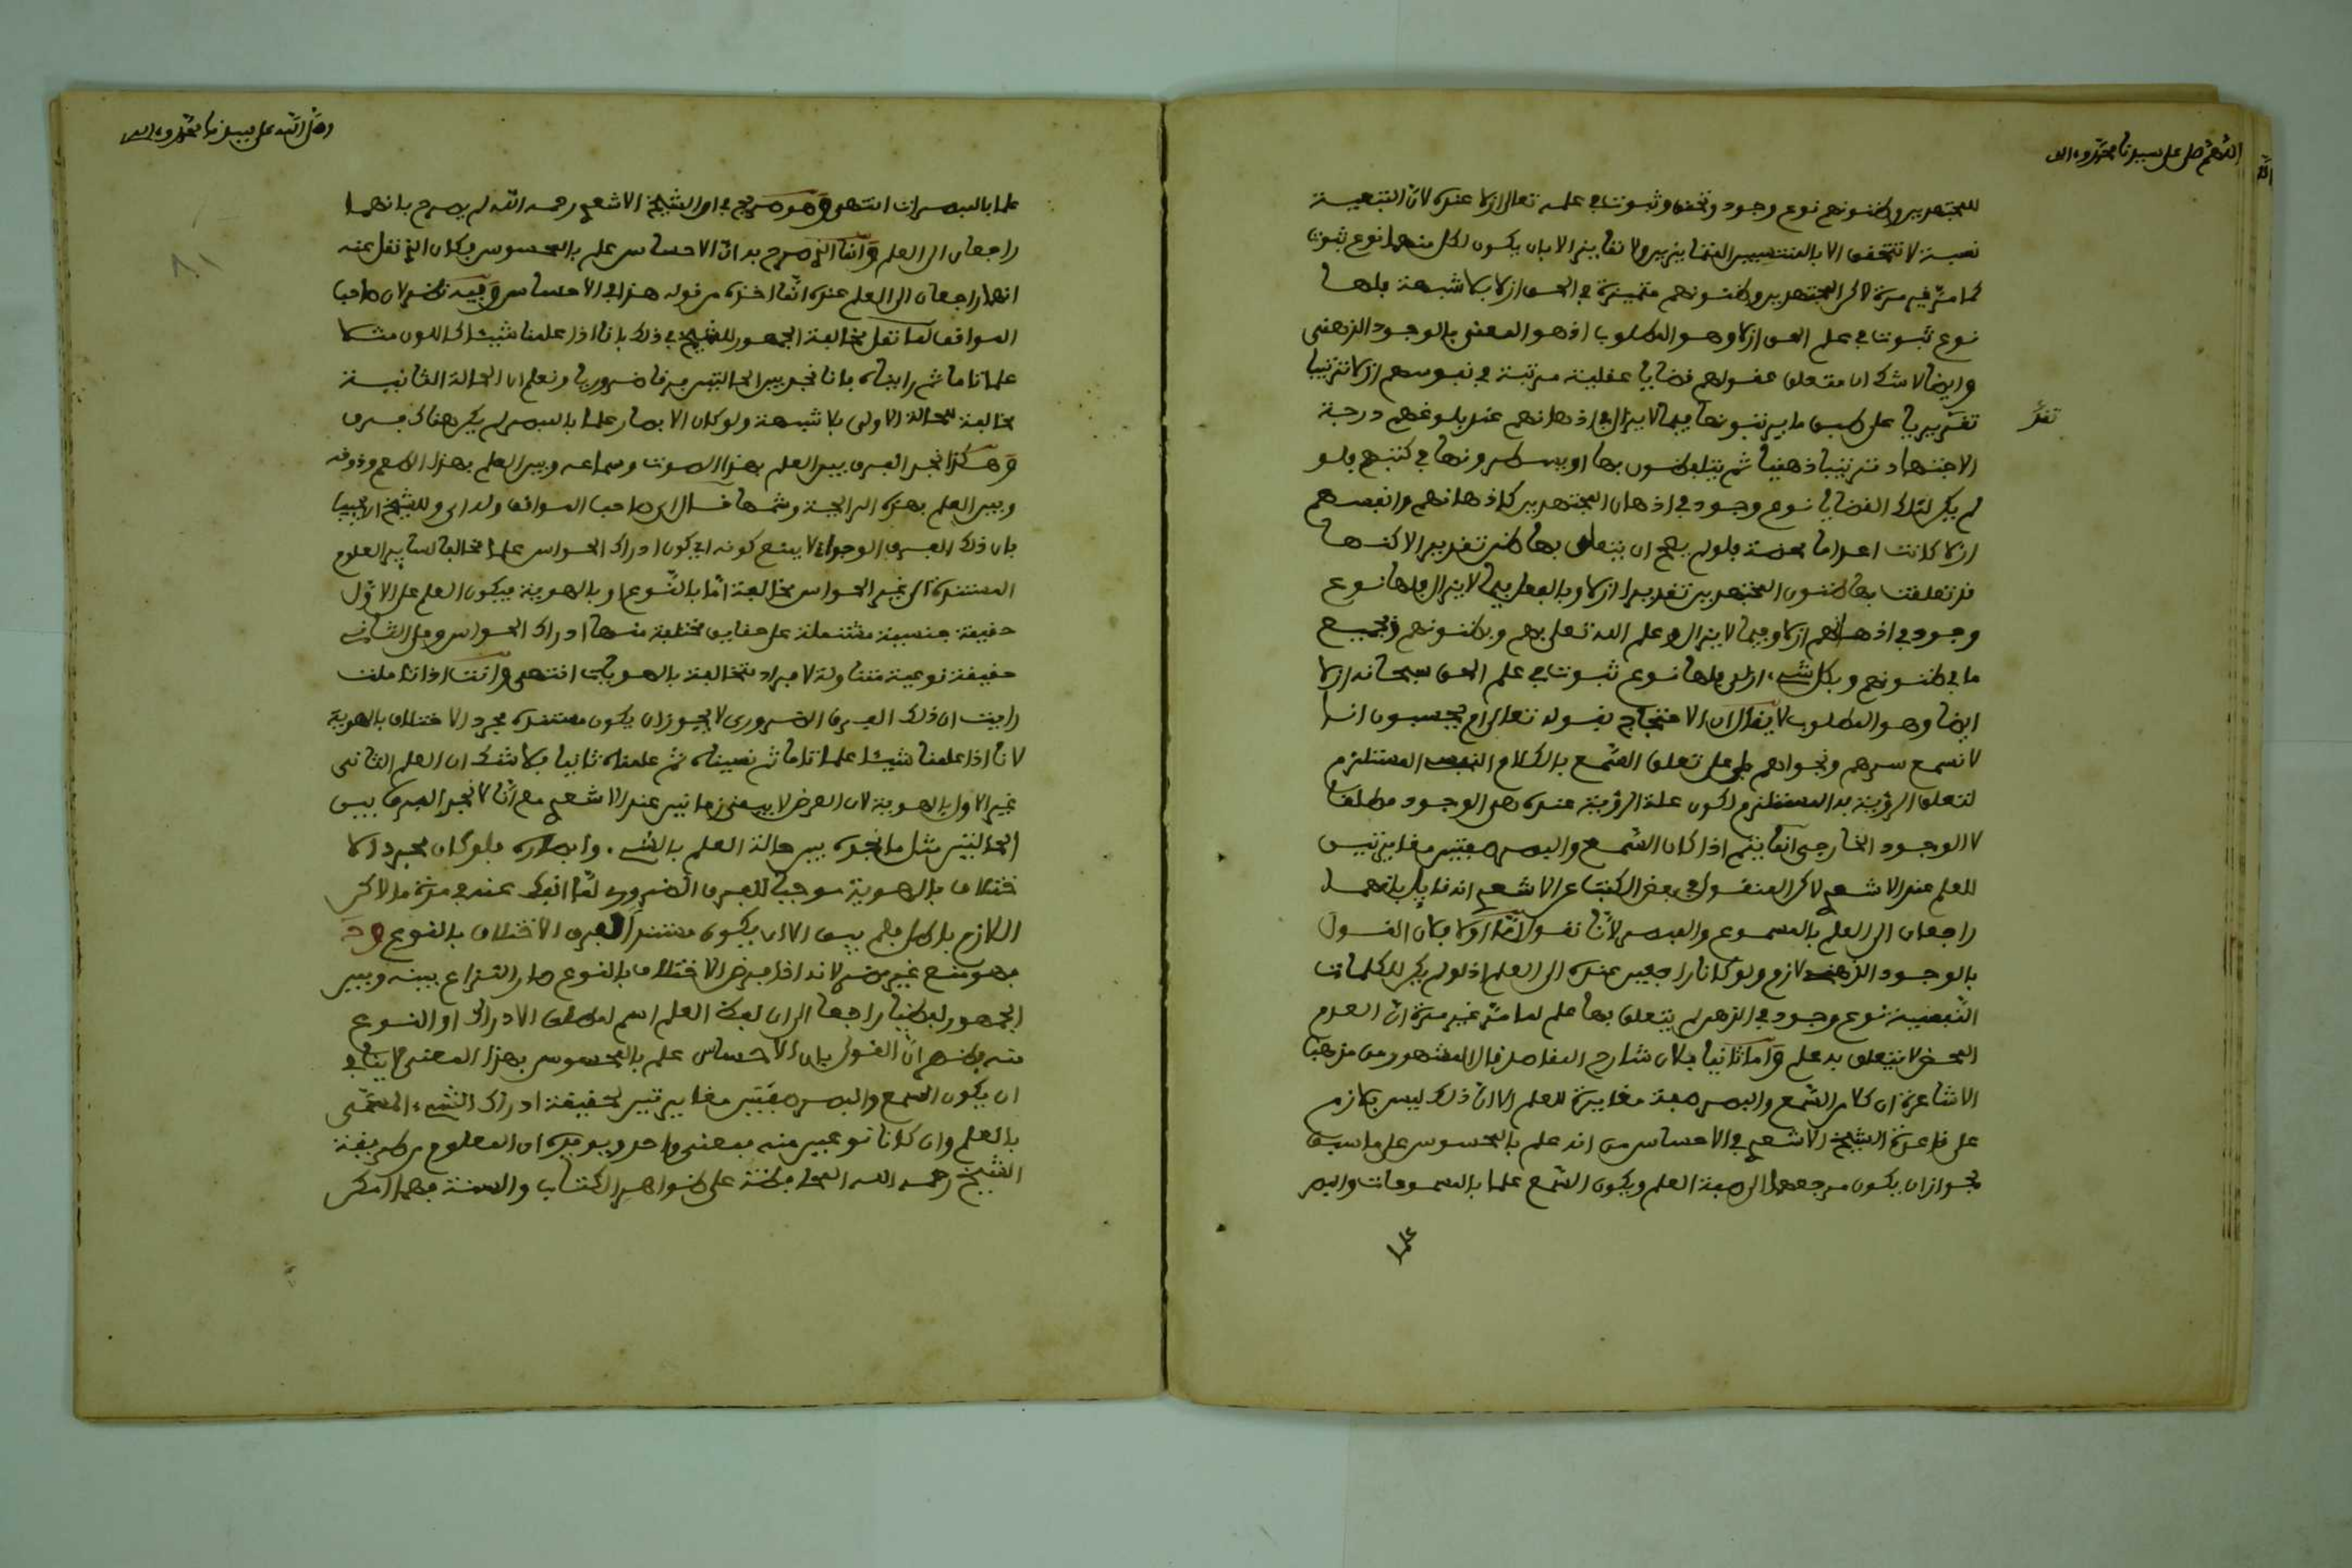 اللهم صل على سيدنا محمد وءاله
للمجتهدين وظنونهم نوع وجود وتحقق وثبوت في علمه تعالى ازلا عنده لان التبعية
نسبة لا تتحقق الا بالمنتسبين المتمايزين ولا تمايز الا بان يكون لكل منهما نوع ثبوت
كما مر غير مرة لاكن المجتهدين وظنونهم متميزة في الحق ازلا بلا شبهة فلها
نوع ثبوت في علم الحق ازلا وهو المطلوب اذ هو المعنى بالوجود الذهني
وايضا لا شك ان متعلق عقولهم قضايا عقلية مرتبة في نفوسهم ازلا ترتيبا
تقديريا على طبق ما يرتبونها فيما لا يزال في اذهانهم عند بلوغهم درجة
تقد
الاجتهاد ترتيبا ذهنيا ثم يتلفظون بها او يسطرونها في كتبهم فلو
لم يكن لتلك القضايا نوع وجود في اذهان المجتهدين كاذهانهم وانفسهم
ازلا كانت اعداما محضة فلو لم يصح ان يتعلق بها ظنهم تقديرا لاكنها
قد تعلقت بها ظنون المجتهدين تقديرا ازلا وبالفعل فيما لا يزال فلها نوع
وجود في اذهانهم ازلا وفيما لا يزال وعلم الله تعلق بهم وبظنونهم وبجميع
ما في ظنونهم وبكل شيء ازلا فلها نوع ثبوت في علم الحق سبحانه ازلا
ايضا وهو المطلوب لا يقال ان الاحتجاج بقوله تعالى ام يحسبون انا
لا نسمع سرهم ونجواهم على تعلق السمع بالكلام النفسي المستلزم
لتعلق الرؤية به المستلزم لكون علة الرؤية عنده هي الوجود مطلقا
لا الوجود الخارجي انما يتم اذا كان السمع والبصر صفتين مغايرتين
للعلم عند الاشعري لاكن المنقول في بعض الكتب عن الاشعري انه قايل بانهما
راجعان الى العلم بالمسموع والمبصر لانا نقول اما اولا فلان القول
بالوجود الذهني لازم ولو كانا راجعين عنده الى العلم اذ لو لم يكن للكلمات
النفسية نوع وجود في الذهن لم يتعلق بها علم لما مر غير مرة ان العدم
المحض لا يتعلق به علم واما ثانيا فلان شارح المقاصد قال المشهور من مذهب
الاشاعرة ان كلا من السمع والبصر صفة مغايرة للعلم الا ان ذلك ليس بلازم
على قاعدة الشيخ الاشعري في الاحساس من انه علم بالمحسوس على ما سبق
لجواز ان يكون مرجعهما الى صفة العلم ويكون السمع علما بالمسموعات والبصر
علما
وصل الله على سيدنا محمد وءاله
علما بالمبصرات انتهى وهو صريح في ان الشيخ الاشعري رحمه الله لم يصرح بانهما
راجعان الى العلم وانما الذي صرح به ان الاحساس علم بالمحسوس فكان الذي نقل عنه
انهما راجعان الى العلم عنده انما اخذه من قوله هذا في الاحساس وفيه نظر لان صاحب
المواقف لما نقل مخالفة الجمهور للشيخ في ذلك بانا اذا علمنا شيئا كاللون مثلا
علما تاما ثم رايناه فانا نجد بين الحالتين فرقا ضروريا ونعلم ان الحالة الثانية
مخالفة للحالة الاولى بلا شبهة ولو كان الابصار علما بالمبصر لم يكن هناك فرق
وهكذا نجد الفرق بين العلم بهذا الصوت وسماعه وبين العلم بهذا الطعم وذوقه
وبين العلم بهذه الرايحة وشمها قال اي صاحب المواقف وله اي وللشيخ ان يجيب
بان ذلك الفرق الوجداني لا يمنع كونه اي كون ادراك الحواس علما مخالفا لساير العلوم
المستندة الى غير الحواس مخالفة اما بالنوع او بالهوية فيكون العلم على الاول
حقيقة جنسية مشتملة على حقايق مختلفة منها ادراك الحواس وعلى الثاني
حقيقة نوعية متناولة لافراد متخالفة بالهويات انتهى وانت اذا تاملت
رايت ان ذلك الفرق الضروري لا يجوز ان يكون مستنده مجرد الاختلاف بالهوية
لانا اذا علمنا شيئا علما تاما ثم نسيناه ثم علمناه ثانيا فلا شك ان العلم الثاني
غير الاول بالهوية لان العرض لا يبقى زمانين عند الاشعري مع انا لا نجد الفرق بين
الحالتين مثل ما نجده بين حالة العلم بالشيء وابصاره فلو كان مجرد الا
ختلاف بالهوية موجبا للفرق الضروري لما انفك عنه في مرة ما لاكن
اللازم باطل فلم يبق الا ان يكون مستند الفرق الاختلاف بالنوع وح
فهو منع غير مضر لانه اذا فرض الاختلاف بالنوع صار النزاع بينه وبين
الجمهور لفظيا راجعا الى ان لفظ العلم اسم لمطلق الادراك او النوع
منه فظهر ان القول بان الاحساس علم بالمحسوس بهذا المعنى لا ينافي
ان يكون السمع والبصر صفتين مغايرتين لحقيقة ادراك الشيء المسمى
بالعلم وان كانا نوعين منه بمعنى واحد ويويده ان المعلوم من طريقة
الشيخ رحمه الله المحافظة على ظواهر الكتاب والسنة مهما امكن